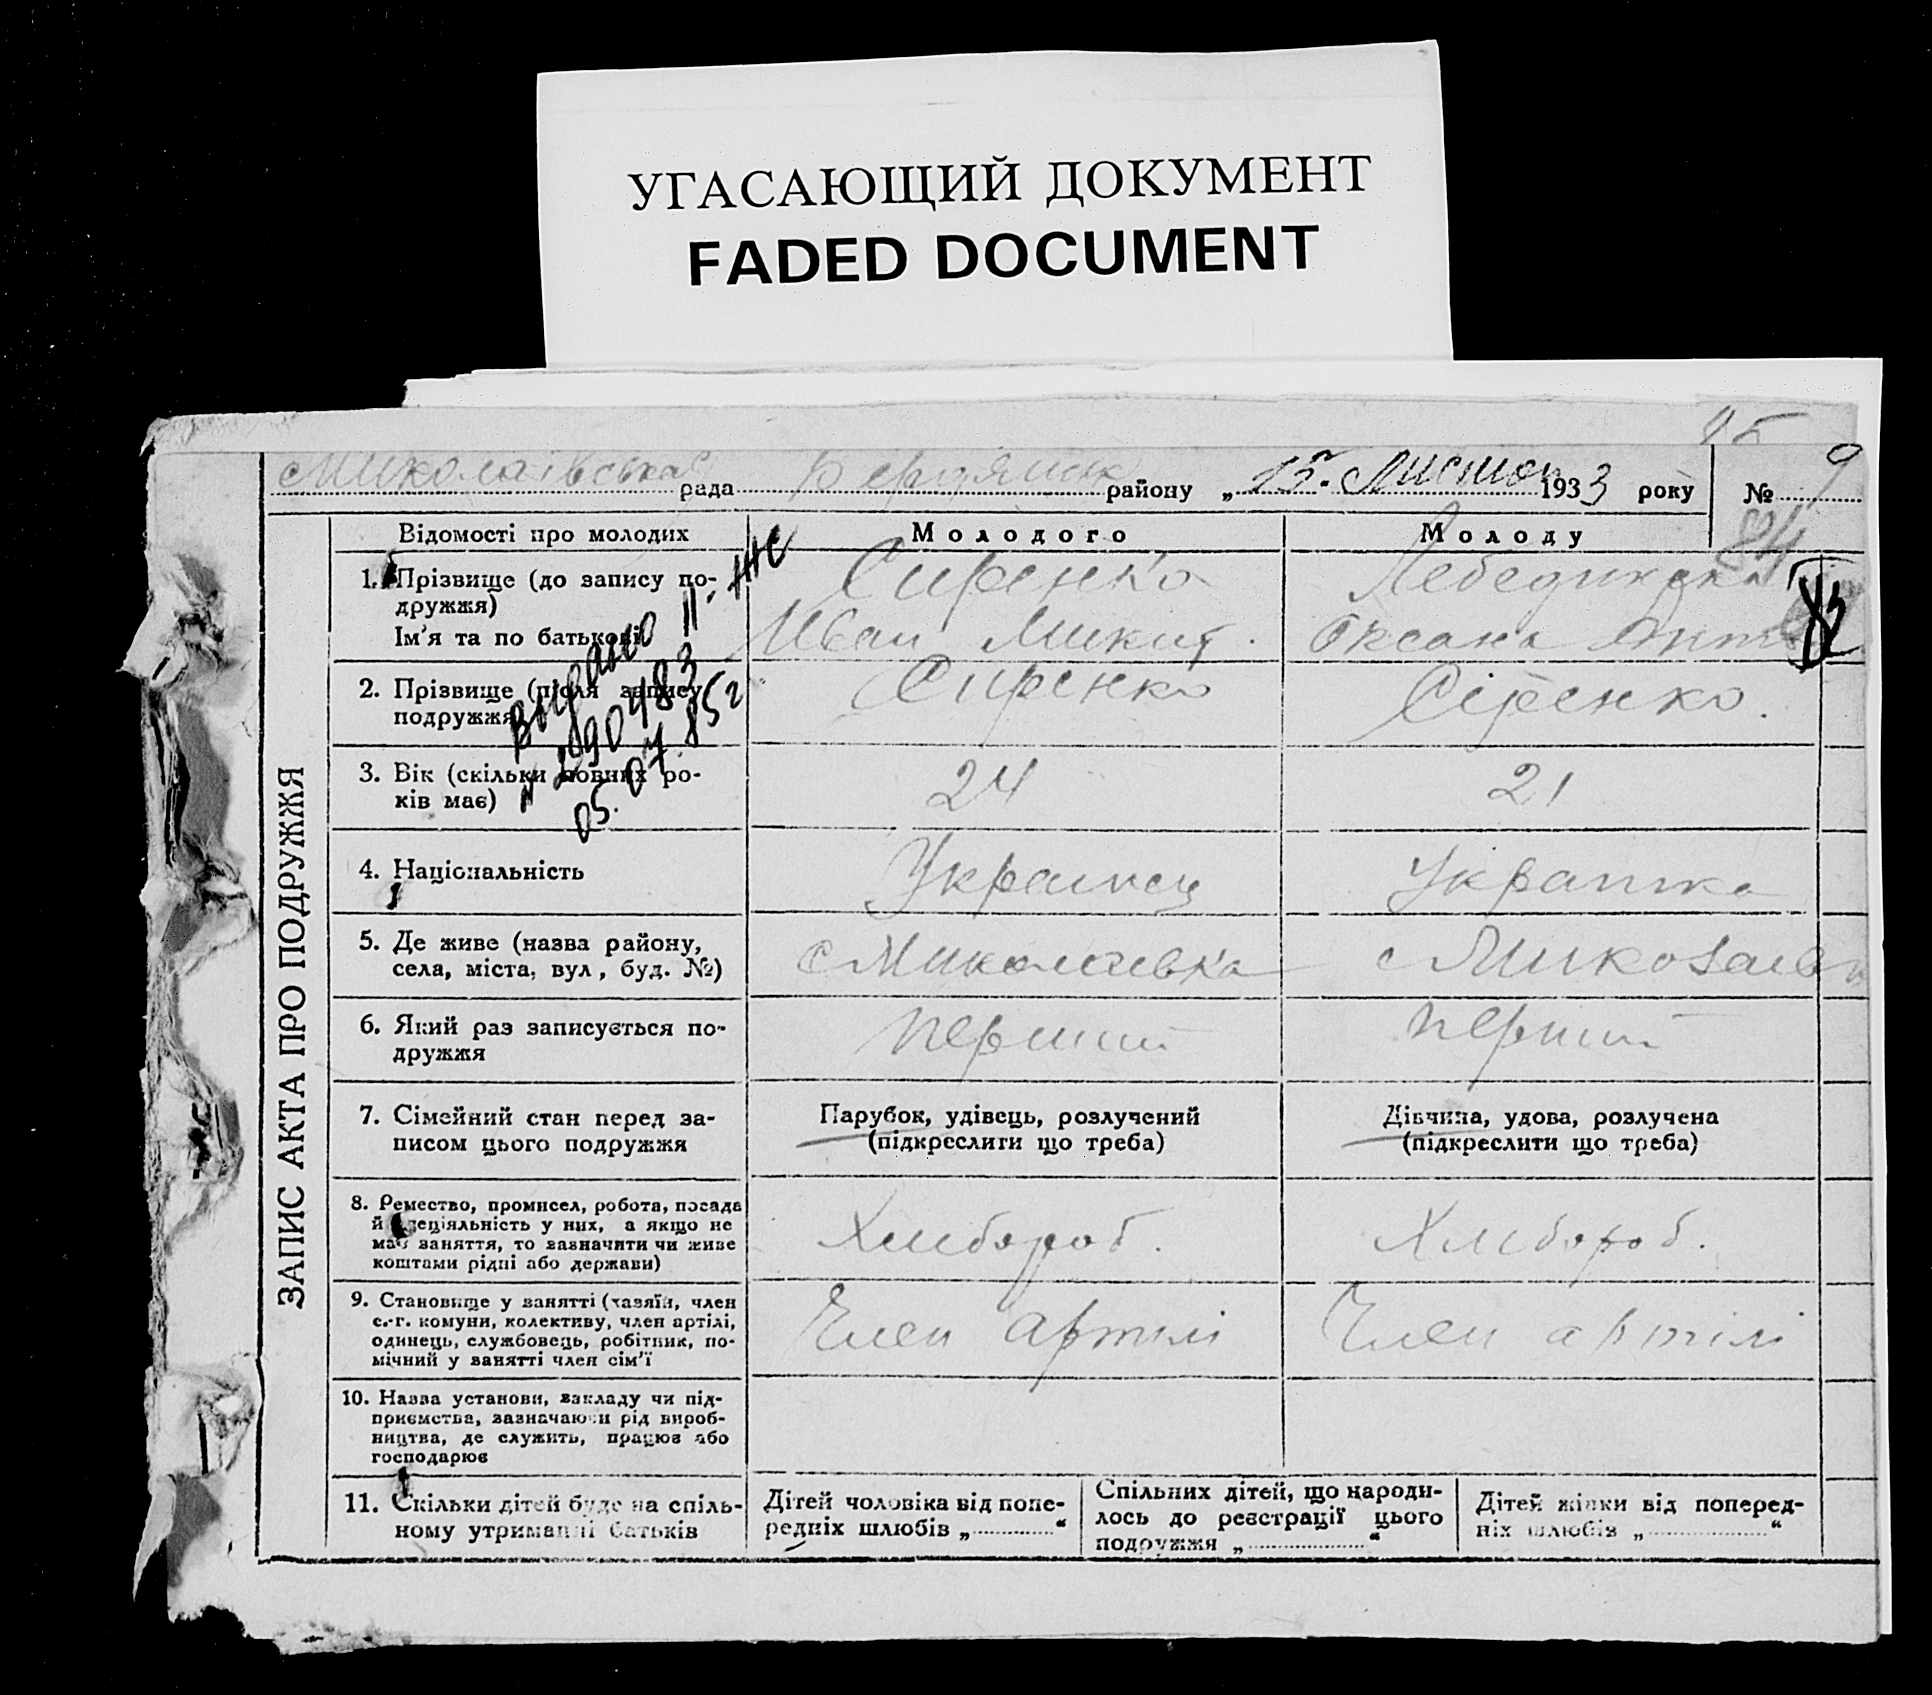 УГАСАЮЩИЙ ДОКУМЕНТ
FADED DOCUMENT
Миколаївська рада Бердянськ району „15. Листоп 1933 року № 9
84
ЗАПИС АКТА ПРО ПОДРУЖЖЯ
Відомості про молодих
Молодого
Молоду
1. Прізвище (до запису по-
дружжя)
Ім'я та по батькові
Сиренко
Иван Микит.
Оксана
2. Прізвище (після запису
подружжя
Сиренко
Сіренко.
Выдано II-ЖС
№ 290483
05.07.85г
3. Вік (скільки повних ро-
ків має)
24
21
4. Національність
Украинец
Украінка
5. Де живе (назва району,
села, міста, вул, буд. №)
с Миколаевка
с Миколаевк
6. Який раз записується по-
дружжя
перший
перший
7. Сімейний стан перед за-
писом цього подружжя
Парубок, удівець, розлучений
(підкреслити що треба)
Дівчина, удова, розлучена
(підкреслити що треба)
8. Ремество, промисел, робота, посада
й спеціяльність у них, а якщо не
має заняття, то зазначити чи живе
коштами рідні або держави)
Хлибороб.
Хлибороб.
9. Становище у занятті (хазяїн, член
с.-г. комуни, колективу, член артілі,
одинець, службовець, робітник, по-
мічний у занятті член сім'ї
Член артілі
Член артілі
10. Назва установи, закладу чи під-
приємства, зазначаючи рід вироб-
ництва, де служить, працює або
господарює
11. Скільки дітей буде на спіль-
ному утриманні батьків
Дітей чоловіка від попе-
редніх шлюбів „............“
Спільних дітей, що народи-
лось до реєстрації цього
подружжя „............“
Дітей жінки від поперед-
ніх шлюбів „............“